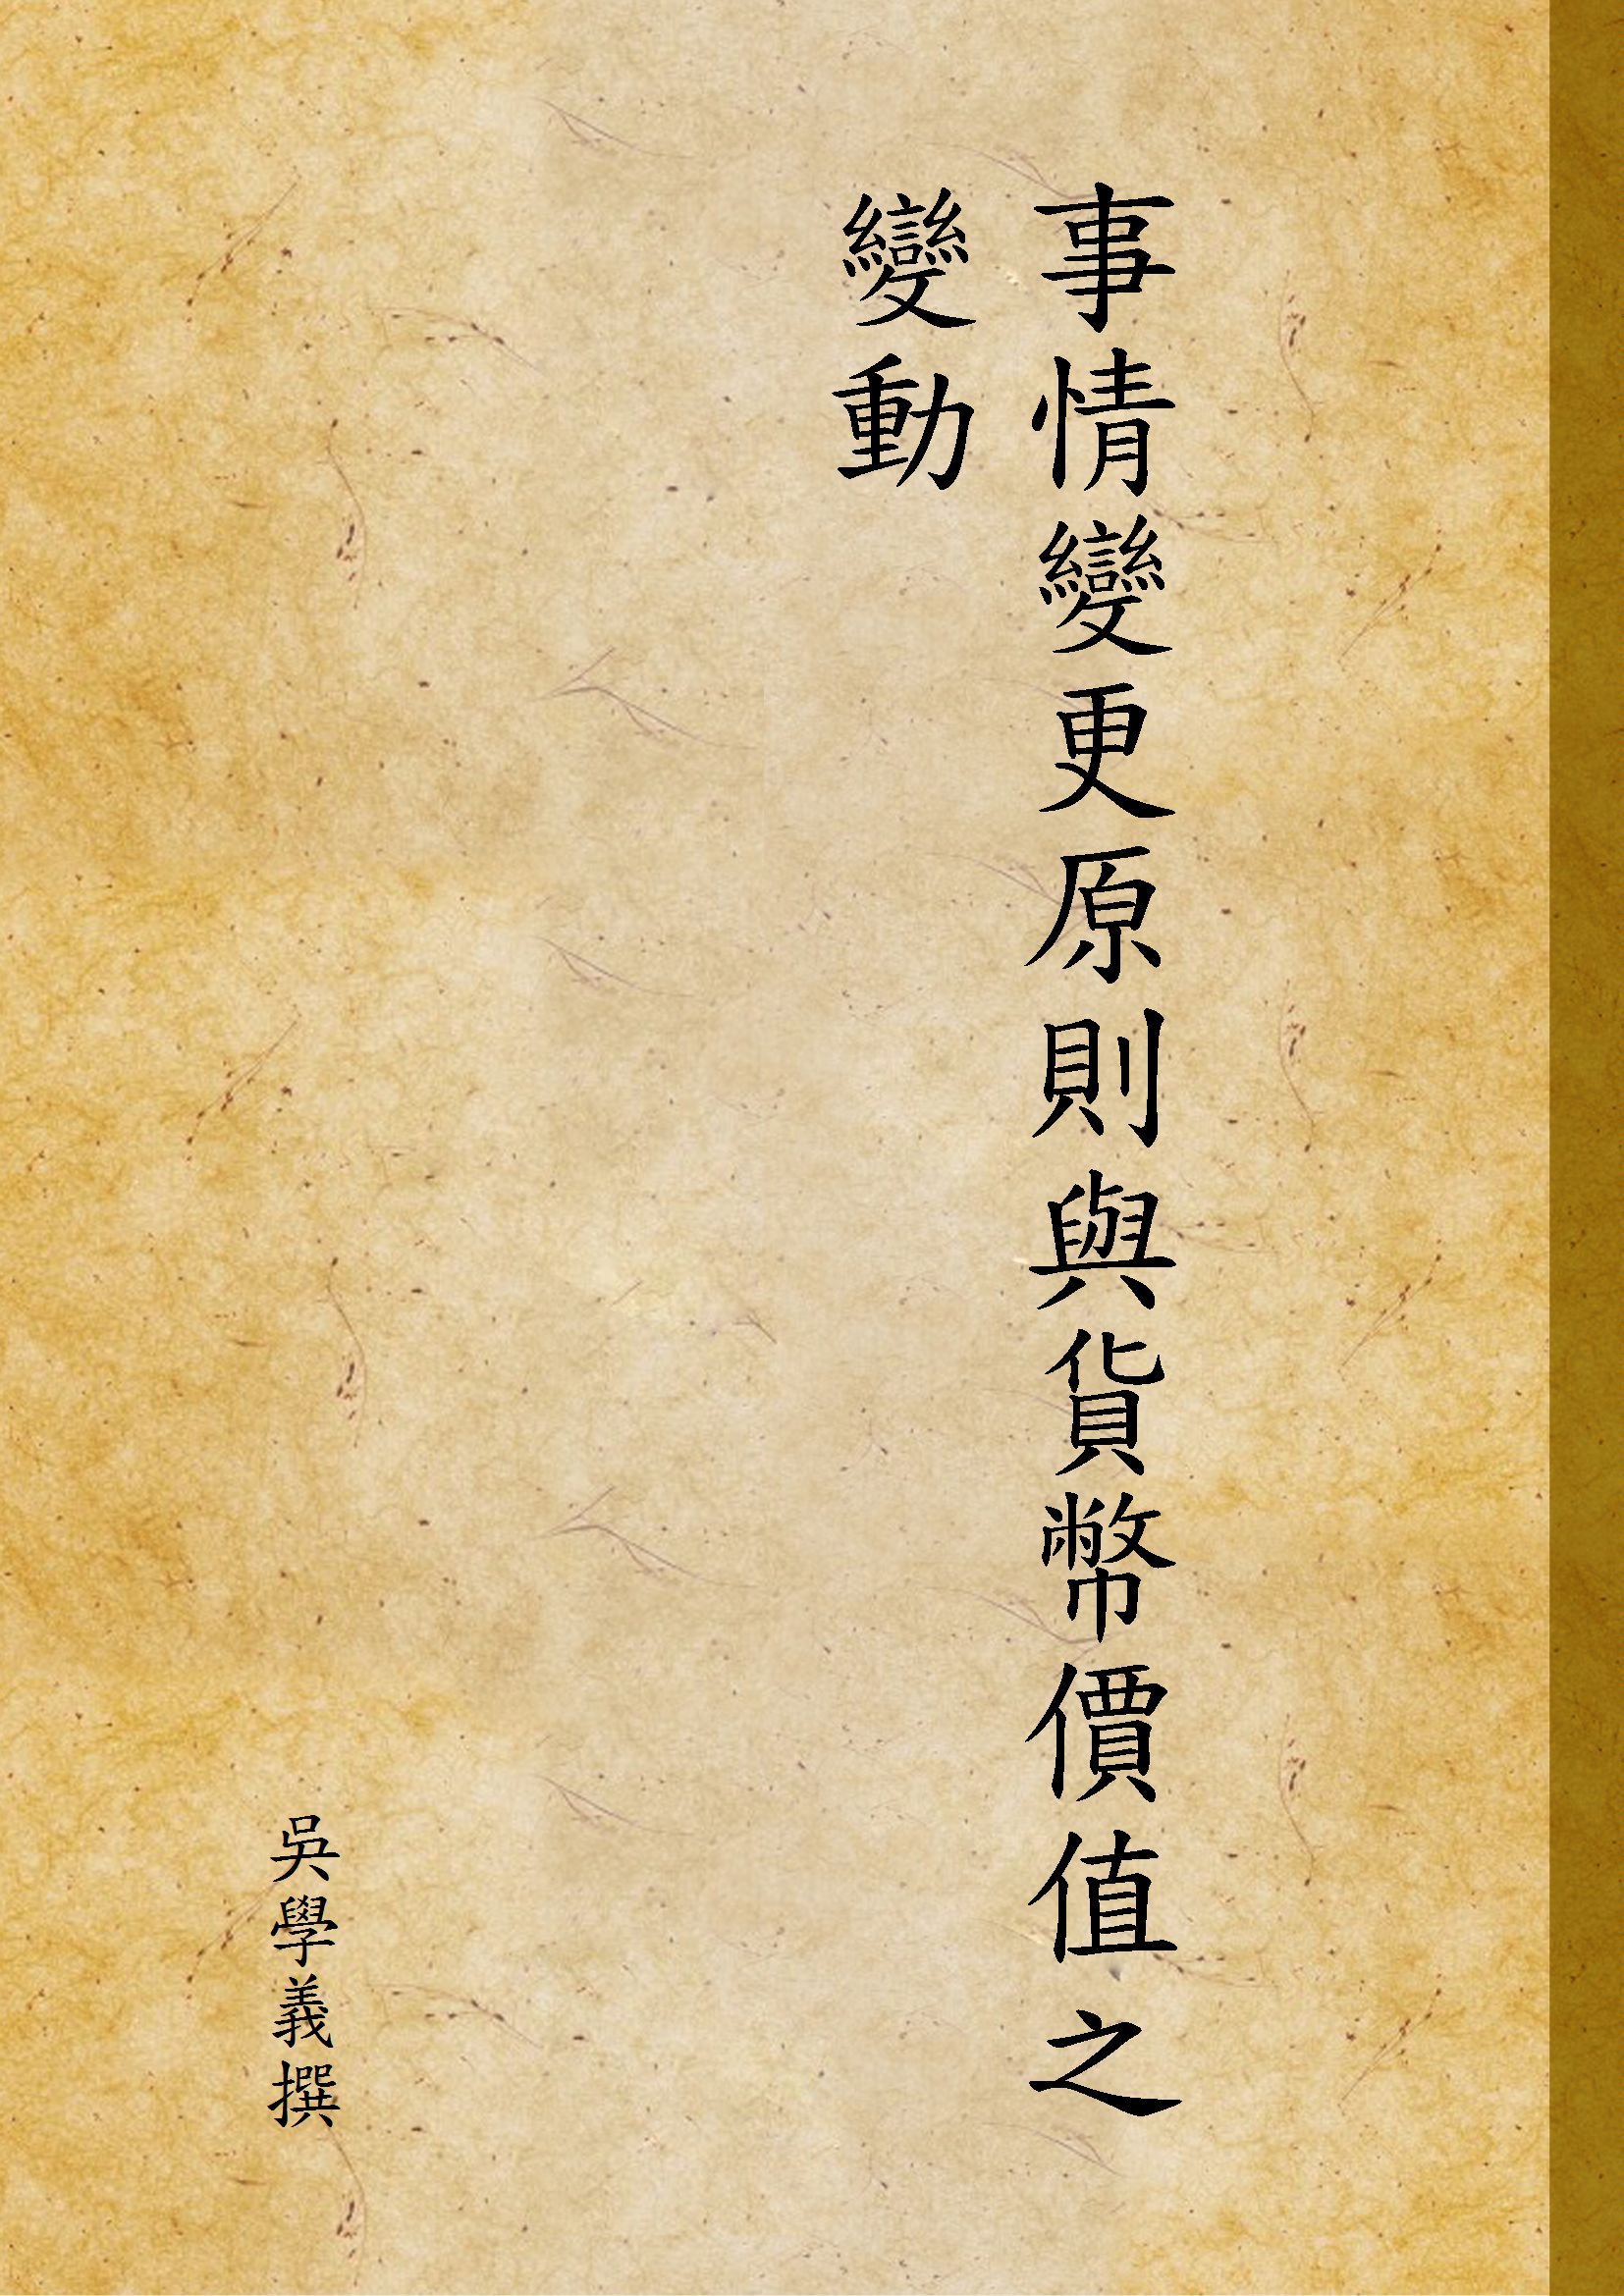 事情變更原則與貨幣價值之
變動
吳學義撰